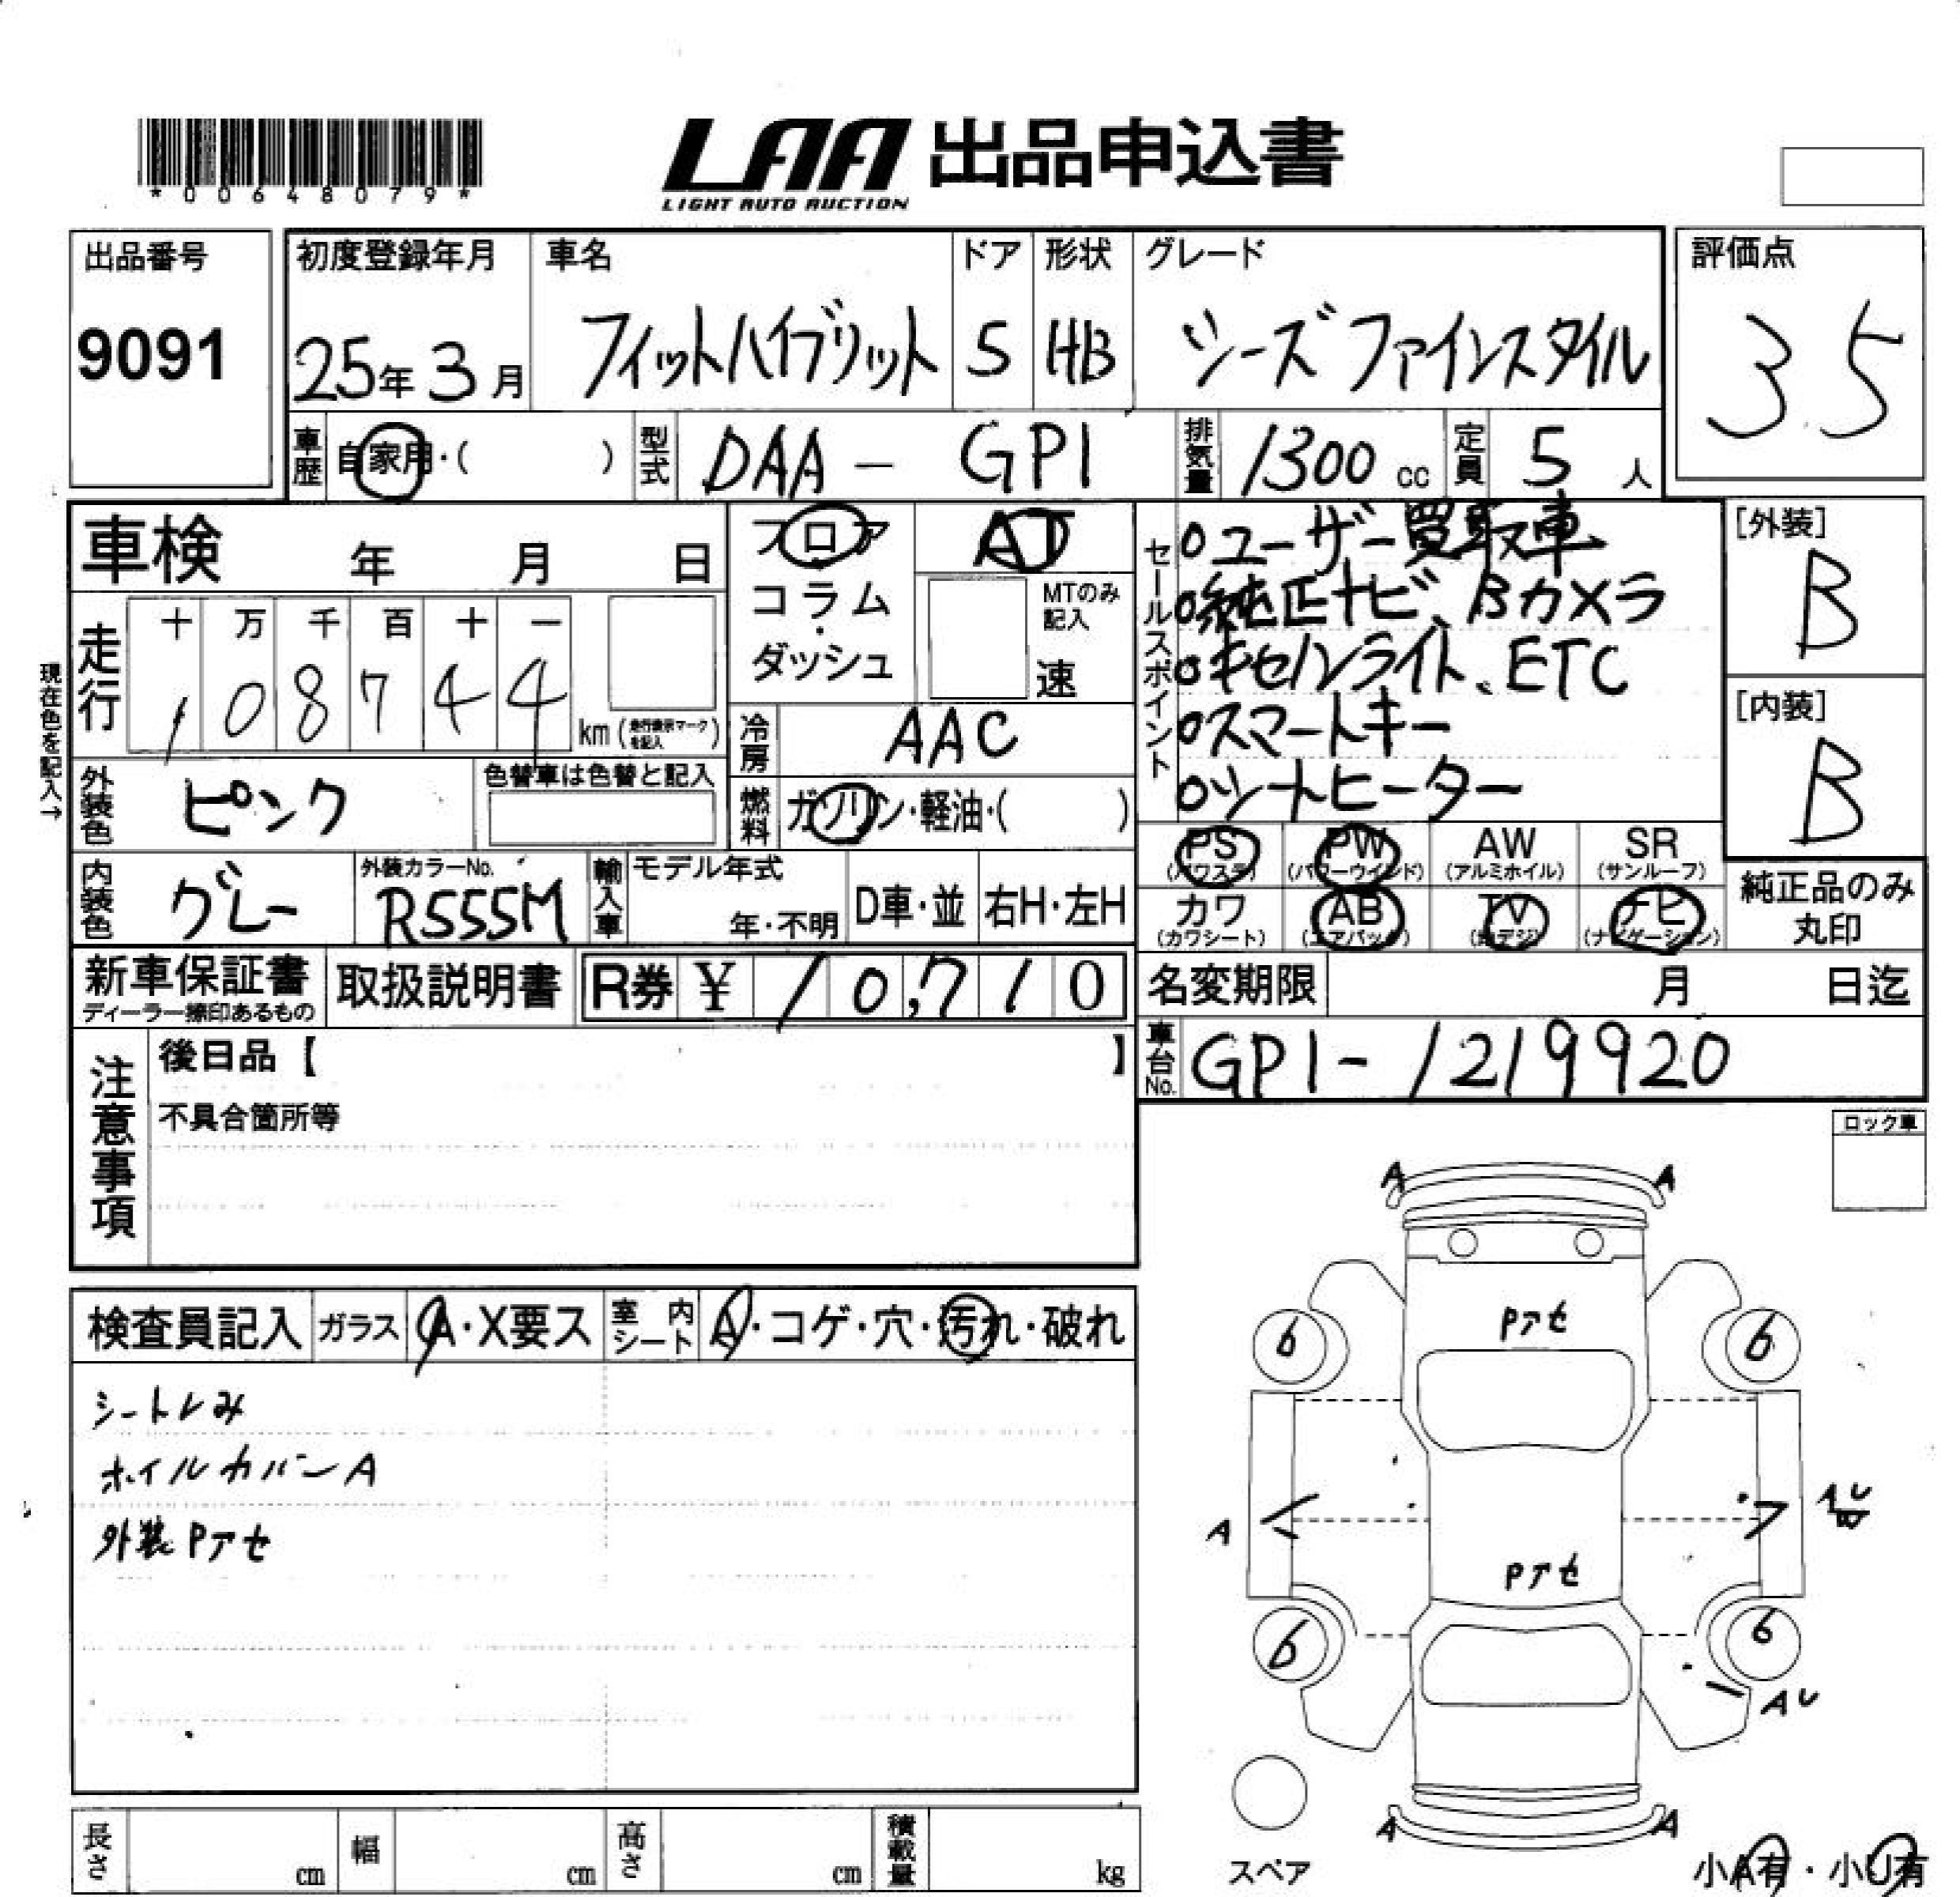 *00648079*
LAA 出品申込書
LIGHT AUTO AUCTION
出品番号
9091
初度登録年月
25年3月
車名
フィットハイブリット
ドア
5
形状
HB
グレード
シーズ ファインスタイル
評価点
3.5
車歴
自家用・( )
型式
DAA - GP1
排気量
1300 cc
定員
5 人
車検 年 月 日
フロア
コラム・ダッシュ
AT
MTのみ記入
速
セールスポイント
○ユーザー買取車
○純正ナビ、Bカメラ
○キセノンライト、ETC
○スマートキー
○シートヒーター
[外装]
B
[内装]
B
現在色を記入→
走行
十 万 千 百 十 一
1 0 8 7 4 4
km (走行表示マークを記入)
冷房
AAC
外装色
ピンク
色替車は色替と記入
燃料
ガソリン・軽油・( )
PS (パワステ)
PW (パワーウインド)
AW (アルミホイル)
SR (サンルーフ)
カワ (カワシート)
AB (エアバック)
TV (地デジ)
ナビ (ナビゲーション)
純正品のみ丸印
内装色
グレー
外装カラーNo.
R555M
輸入車
モデル年式
年・不明
D車・並
右H・左H
新車保証書
ディーラー捺印あるもの
取扱説明書
R券 ¥ 10,710
名変期限 月 日迄
車台No.
GP1-1219920
注意事項
後日品【 】
不具合箇所等
ロック車
検査員記入
ガラス
A・X要ス
室内シート
A・コゲ・穴・汚れ・破れ
ホイルカバーA
外装Pアセ
A A
Pアセ
6 6
A
AU
Pアセ
6 6
AU
A A
スペア
小A有・小U有
長さ cm
幅 cm
高さ cm
積載量 kg